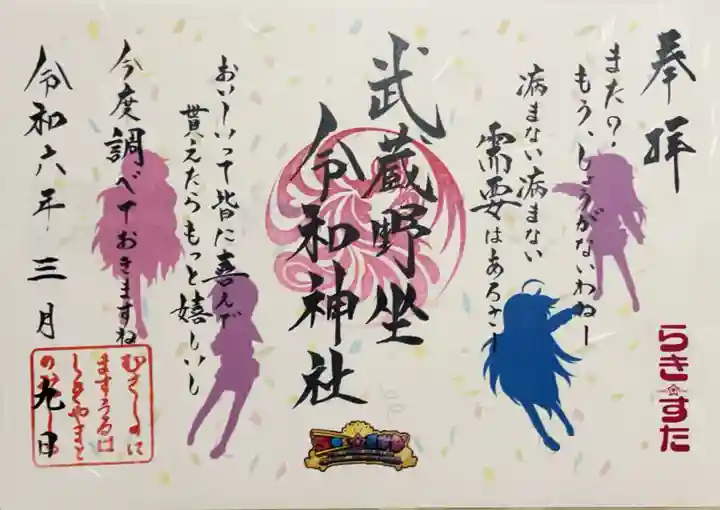 奉拝
また?
もう、しょうがないわねー
病まない病まない
需要はあるさー
らき☆すた
武蔵野坐
令和神社
おいしいって皆に喜んで
貰えたらもっと嬉しいし
今度調べておきますね
令和六年三月九日
むさしのに
ますうるは
しきやまと